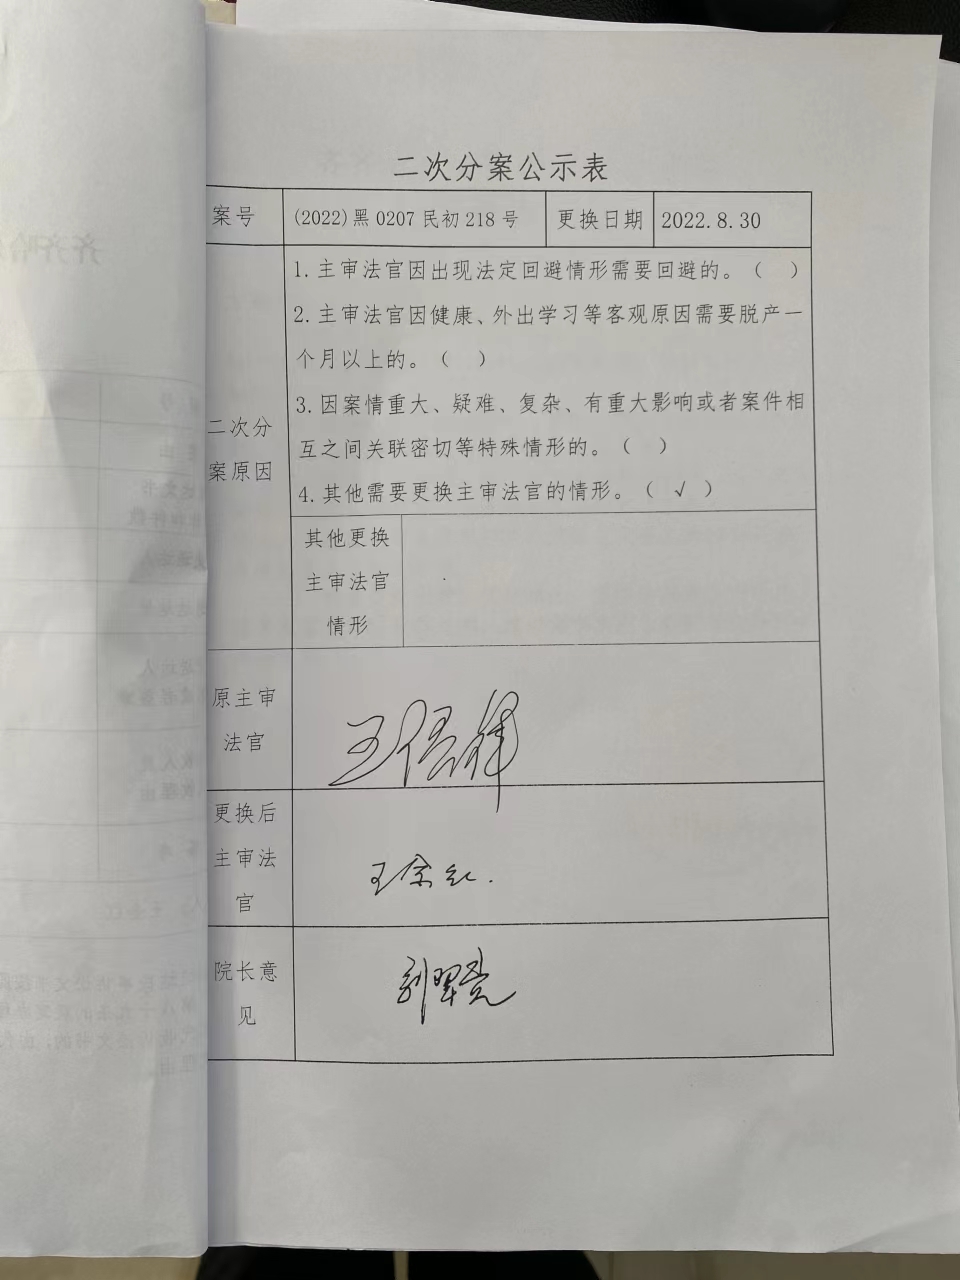 二次分案公示表
案号
(2022)黑 0207 民初 218 号
更换日期
2022.8.30
二次分
案原因
1.主审法官因出现法定回避情形需要回避的。（ ）
2.主审法官因健康、外出学习等客观原因需要脱产一
个月以上的。（ ）
3.因案情重大、疑难、复杂、有重大影响或者案件相
互之间关联密切等特殊情形的。（ ）
4.其他需要更换主审法官的情形。（ √ ）
其他更换
主审法官
情形
原主审
法官
更换后
主审法
官
院长意
见